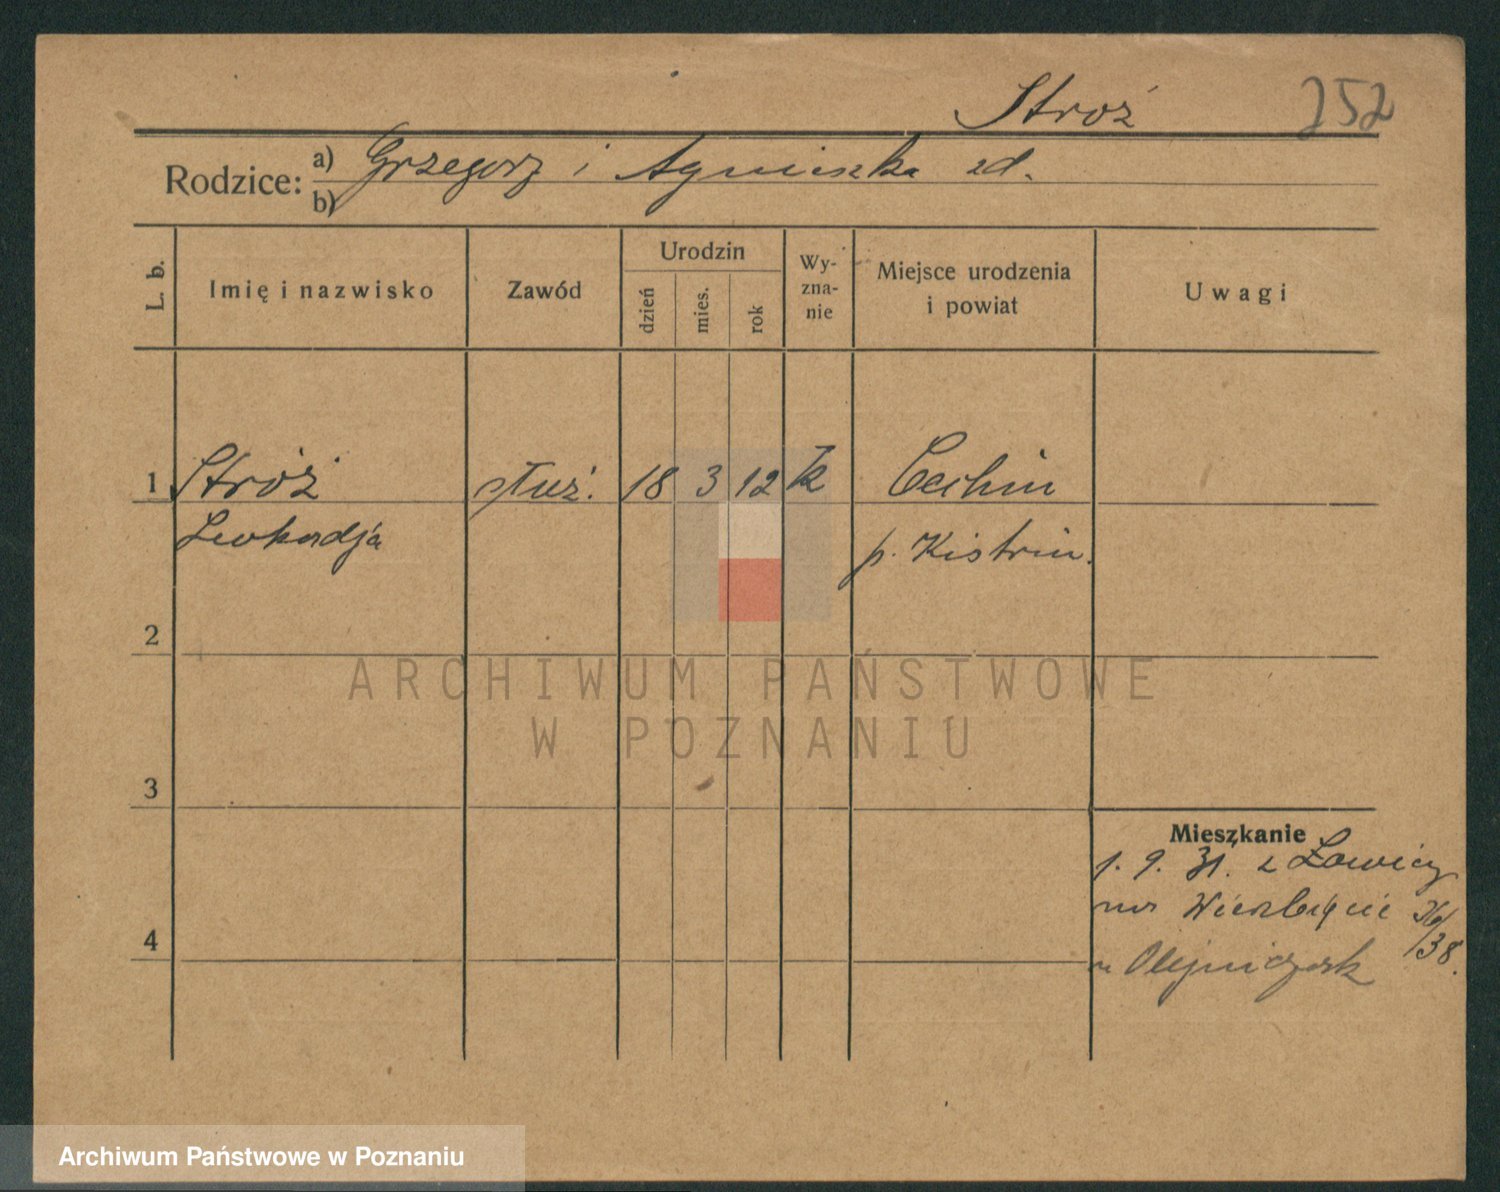 Stroż 252
Rodzice: a) Grzegorz i Agnieszka zd.
b)
L. b. Imię i nazwisko Zawód Urodzin dzień mies. rok Wy-zna-nie Miejsce urodzenia i powiat Uwagi
1 Stróż służ. 18 3 12 k Cechin
Leokadja p. Kistrin.
2
3
Mieszkanie
1. 9. 31. z Ławicy
na Wierzbięcie
4
u Olejniczak
ARCHIWUM PAŃSTWOWE
W POZNANIU
Archiwum Państwowe w Poznaniu